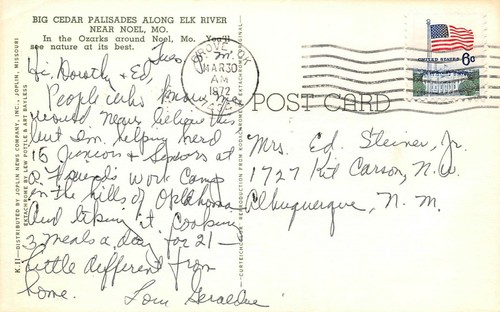 BIG CEDAR PALISADES ALONG ELK RIVER
NEAR NOEL, MO.
In the Ozarks around Noel, Mo. You'll
see nature at its best.
Tues P.M.
Hi, Dorothy & Ed,
People who know me
would never believe this
but I'm helping herd
15 Juniors & Seniors at
a Friends Work Camp
in the hills of Oklahoma
And liking it. Cooking
3 meals a day for 21 –
Little different from
home.
Love Geraldine
GROVE
MAR 30
AM
1972
UNITED STATES
6c
POST CARD
Mrs. Ed. Steiner, Jr.
1727 Kit Carson, N.W.
Albuquerque, N.M.
K-11—DISTRIBUTED BY JOPLIN NEWS COMPANY, INC., JOPLIN, MISSOURI
EKTACHROME BY LEW POTTLE & ART BAYLESS
CURTEICHCOLOR® REPRODUCTION FROM KODACHROME OR EKTACHROME ORIGINAL